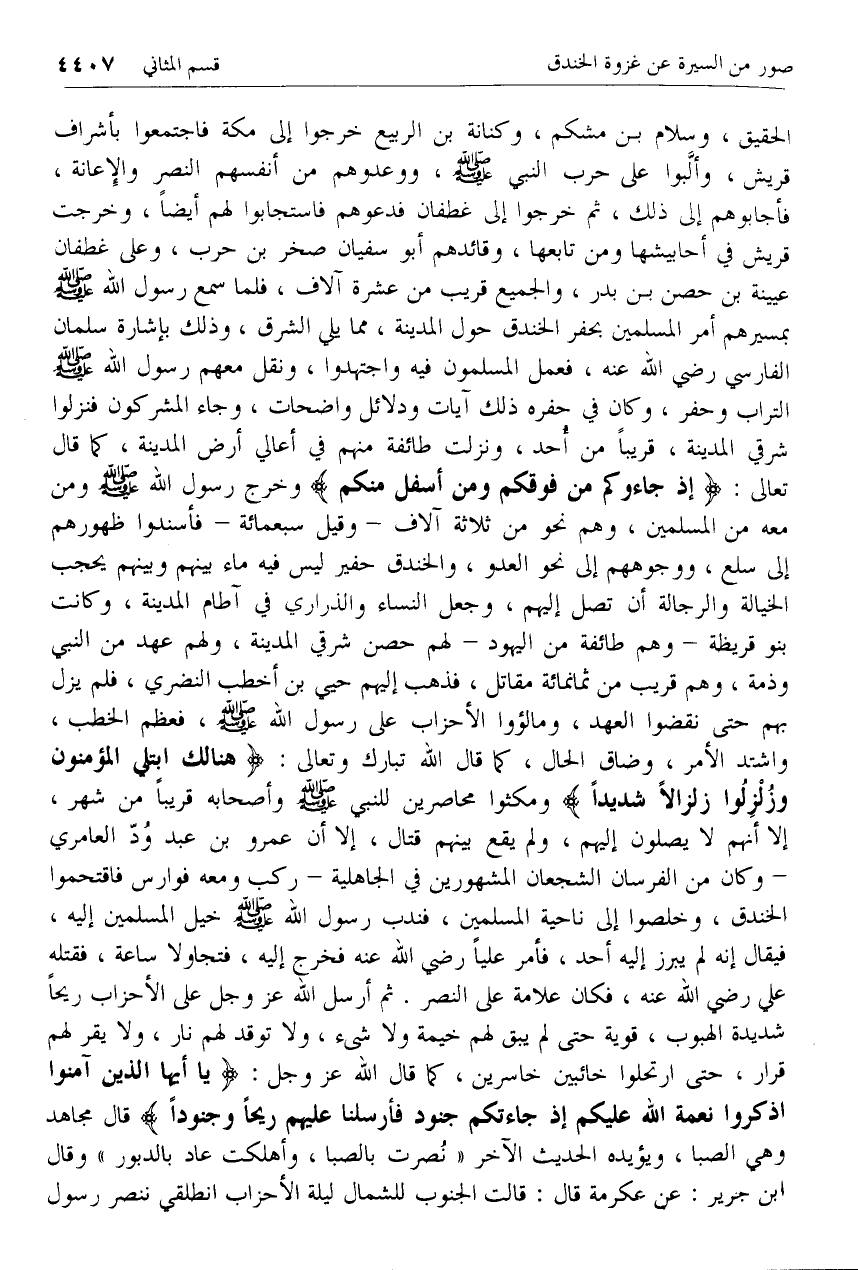 صور من السيرة عن غزوة الخندق قسم المثاني ٤٤٠٧
الحقيق ، وسلام بـن مشكم ، وكنانة بن الربيع خرجوا إلى مكة فاجتمعوا بأشراف
قريش ، وألَّبوا على حرب النبي ﷺ ، ووعدوهم من أنفسهم النصر والإعانة ،
فأجابوهم إلى ذلك ، ثم خرجوا إلى غطفان فدعوهم فاستجابوا لهم أيضاً ، وخرجت
قريش في أحابيشها ومن تابعها ، وقائدهم أبو سفيان صخر بن حرب ، وعلى غطفان
عيينة بن حصن بـن بدر ، والجميع قريب من عشرة آلاف ، فلما سمع رسول الله ﷺ
بمسيرهم أمر المسلمين بحفر الخندق حول المدينة ، مما يلي الشرق ، وذلك بإشارة سلمان
الفارسي رضي الله عنه ، فعمل المسلمون فيه واجتهدوا ، ونقل معهم رسول الله ﷺ
التراب وحفر ، وكان في حفره ذلك آيات ودلائل واضحات ، وجاء المشركون فنزلوا
شرقي المدينة ، قريباً من أُحد ، ونزلت طائفة منهم في أعالي أرض المدينة ، كما قال
تعالى : ﴿ إذ جاءوكم من فوقكم ومن أسفل منكم ﴾ وخرج رسول الله ﷺ ومن
معه من المسلمين ، وهم نحو من ثلاثة آلاف – وقيل سبعمائة – فأسندوا ظهورهم
إلى سلع ، ووجوههم إلى نحو العدو ، والخندق حفير ليس فيه ماء بينهم وبينهم يحجب
الخيالة والرجالة أن تصل إليهم ، وجعل النساء والذراري في آطام المدينة ، وكانت
بنو قريظة – وهم طائفة من اليهود – لهم حصن شرقي المدينة ، ولهم عهد من النبي
وذمة ، وهم قريب من ثمانمائة مقاتل ، فذهب إليهم حيي بن أخطب النضري ، فلم يزل
بهم حتى نقضوا العهد ، ومالؤوا الأحزاب على رسول الله ﷺ ، فعظم الخطب ،
واشتد الأمر ، وضاق الحال ، كما قال الله تبارك وتعالى : ﴿ هنالك ابتلي المؤمنون
وزُلْزِلُوا زلزالاً شديداً ﴾ ومكثوا محاصرين للنبي ﷺ وأصحابه قريباً من شهر ،
إلا أنهم لا يصلون إليهم ، ولم يقع بينهم قتال ، إلا أن عمرو بن عبد وُدّ العامري
– وكان من الفرسان الشجعان المشهورين في الجاهلية – ركب ومعه فوارس فاقتحموا
الخندق ، وخلصوا إلى ناحية المسلمين ، فندب رسول الله ﷺ خيل المسلمين إليه ،
فيقال إنه لم يبرز إليه أحد ، فأمر علياً رضي الله عنه فخرج إليه ، فتجاولا ساعة ، فقتله
علي رضي الله عنه ، فكان علامة على النصر . ثم أرسل الله عز وجل على الأحزاب ريحاً
شديدة الهبوب ، قوية حتى لم يبق لهم خيمة ولا شىء ، ولا توقد لهم نار ، ولا يقر لهم
قرار ، حتى ارتحلوا خائبين خاسرين ، كما قال الله عز وجل : ﴿ يا أيها الذين آمنوا
اذكروا نعمة الله عليكم إذ جاءتكم جنود فأرسلنا عليهم ريحاً وجنوداً ﴾ قال مجاهد
وهي الصبا ، ويؤيده الحديث الآخر « نُصرت بالصبا ، وأهلكت عاد بالدبور » وقال
ابن جرير : عن عكرمة قال : قالت الجنوب للشمال ليلة الأحزاب انطلقي ننصر رسول